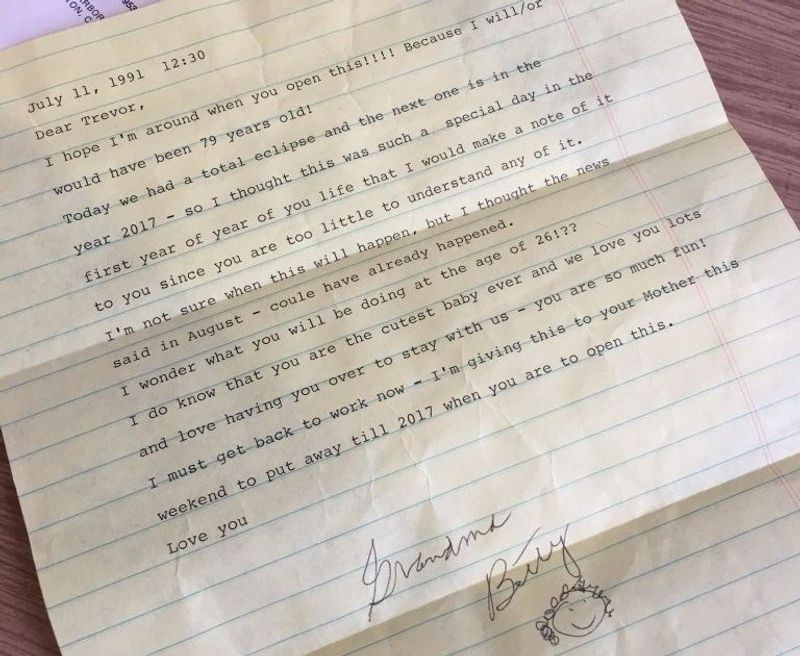 RBOR
TON, C
July 11, 1991 12:30
Dear Trevor,
I hope I'm around when you open this!!!! Because I will/or
would have been 79 years old!
Today we had a total eclipse and the next one is in the
year 2017 - so I thought this was such a special day in the
first year of year of you life that I would make a note of it
to you since you are too little to understand any of it.
I'm not sure when this will happen, but I thought the news
said in August - coule have already happened.
I wonder what you will be doing at the age of 26!??
I do know that you are the cutest baby ever and we love you lots
and love having you over to stay with us - you are so much fun!
I must get back to work now - I'm giving this to your Mother this
weekend to put away till 2017 when you are to open this.
Love you
Grandma
Betty